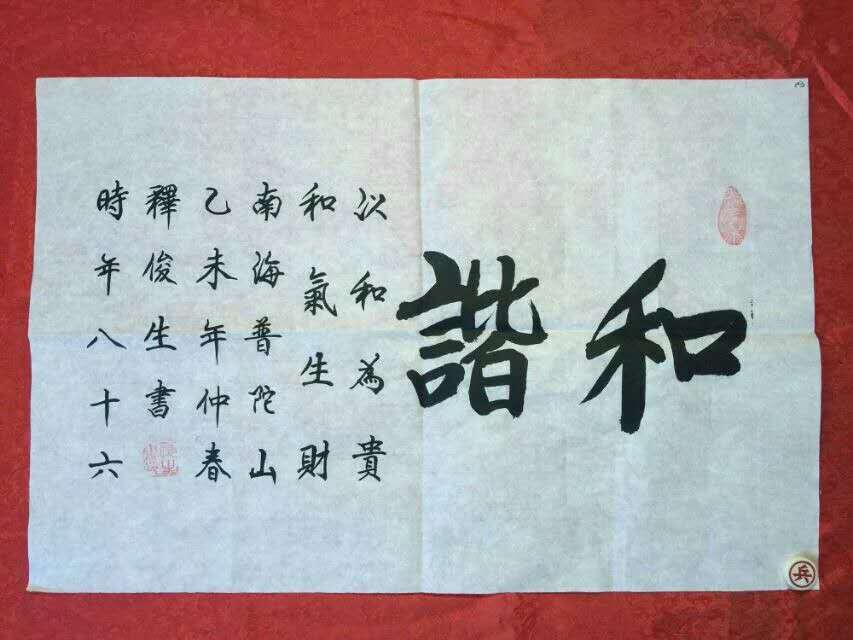 和諧
以和為貴
和氣生財
南海普陀山
乙未年仲春
釋俊生書
時年八十六
兵